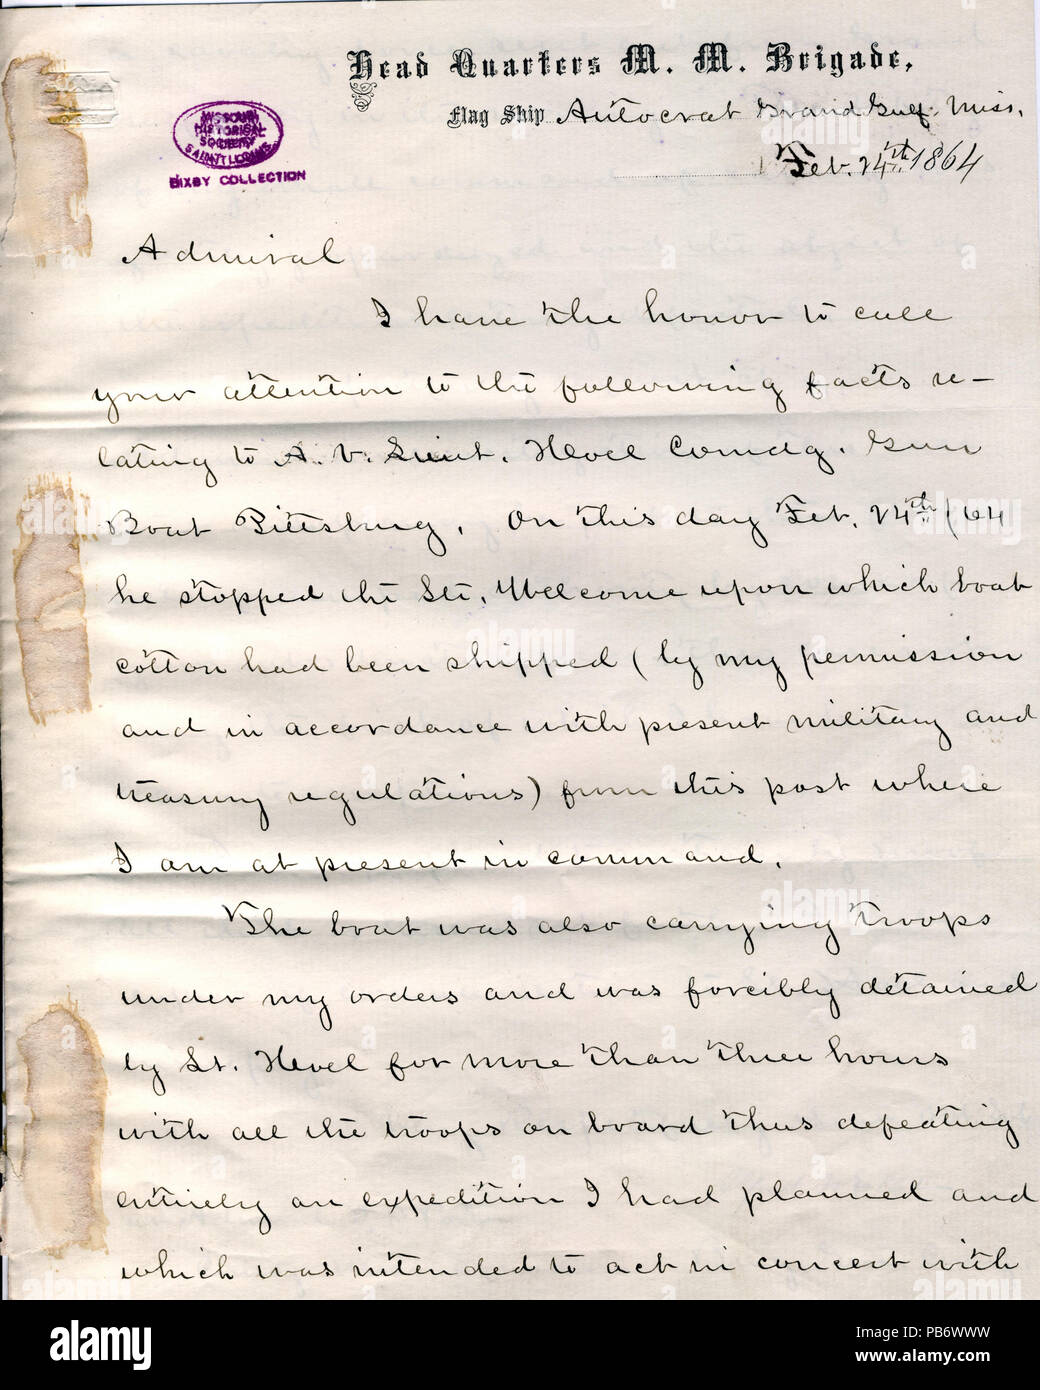 Head Quarters M. M. Brigade,
Flag Ship Autocrat Grand Gulf Miss.
Feb. 24th 1864
MISSOURI
HISTORICAL
SOCIETY
SAINT LOUIS
BIXBY COLLECTION
Admiral
I have the honor to call
your attention to the following facts re-
lating to A. V. Lieut. Hoel Comdg. Gun
Boat Pittsburg. On this day Feb. 24th /64
he stopped the Str. Welcome upon which boat
cotton had been shipped (by my permission
and in accordance with present military and
treasury regulations) from this post where
I am at present in command.
The boat was also carrying troops
under my orders and was forcibly detained
by Lt. Hoel for more than three hours
with all the troops on board thus defeating
entirely an expedition I had planned and
which was intended to act in concert with
alamy
Image ID: PB6WWW
www.alamy.com